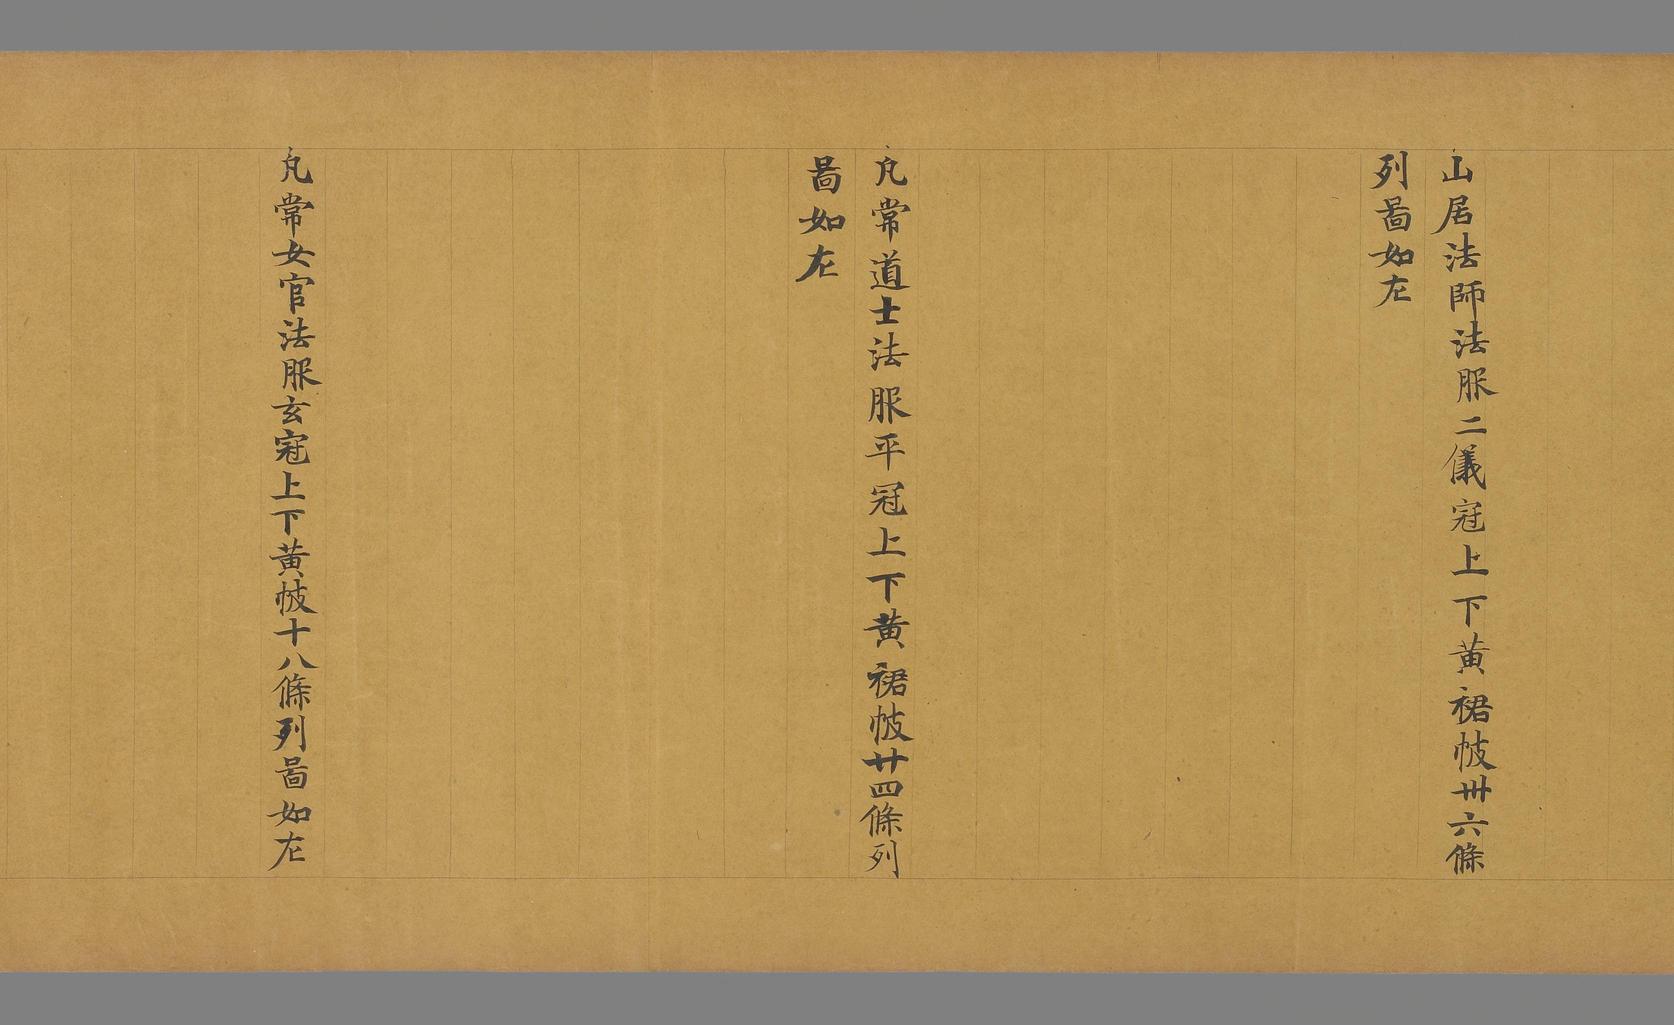 山居法師法服二儀冠上下黄裙帔卅六條
列啚如左
凡常道士法服平冠上下黄裙帔廿四條列
啚如左
凡常女官法服玄冠上下黄帔十八條列啚如左